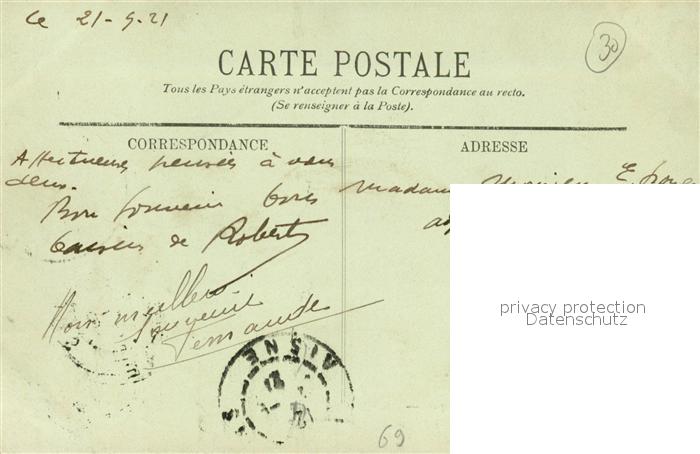 Le 21-9.21
30
CARTE POSTALE
Tous les Pays étrangers n'acceptent pas la Correspondance au recto.
(Se renseigner à la Poste).
CORRESPONDANCE
ADRESSE
Affectueuses pensées à vous
deux.
Bon souvenir bons
baisers de Robert
Madame
Mon meilleur
souvenir
Fernande
AISNE
69
privacy protection
Datenschutz